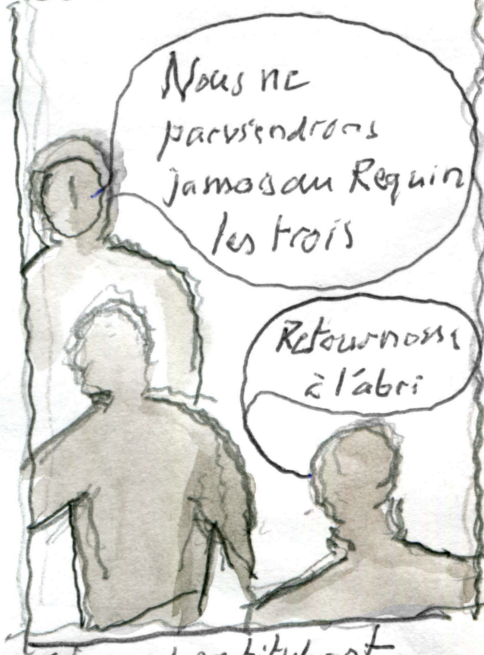 Nous ne
parviendrons
jamais au Requin
les trois
Retournons
à l'abri